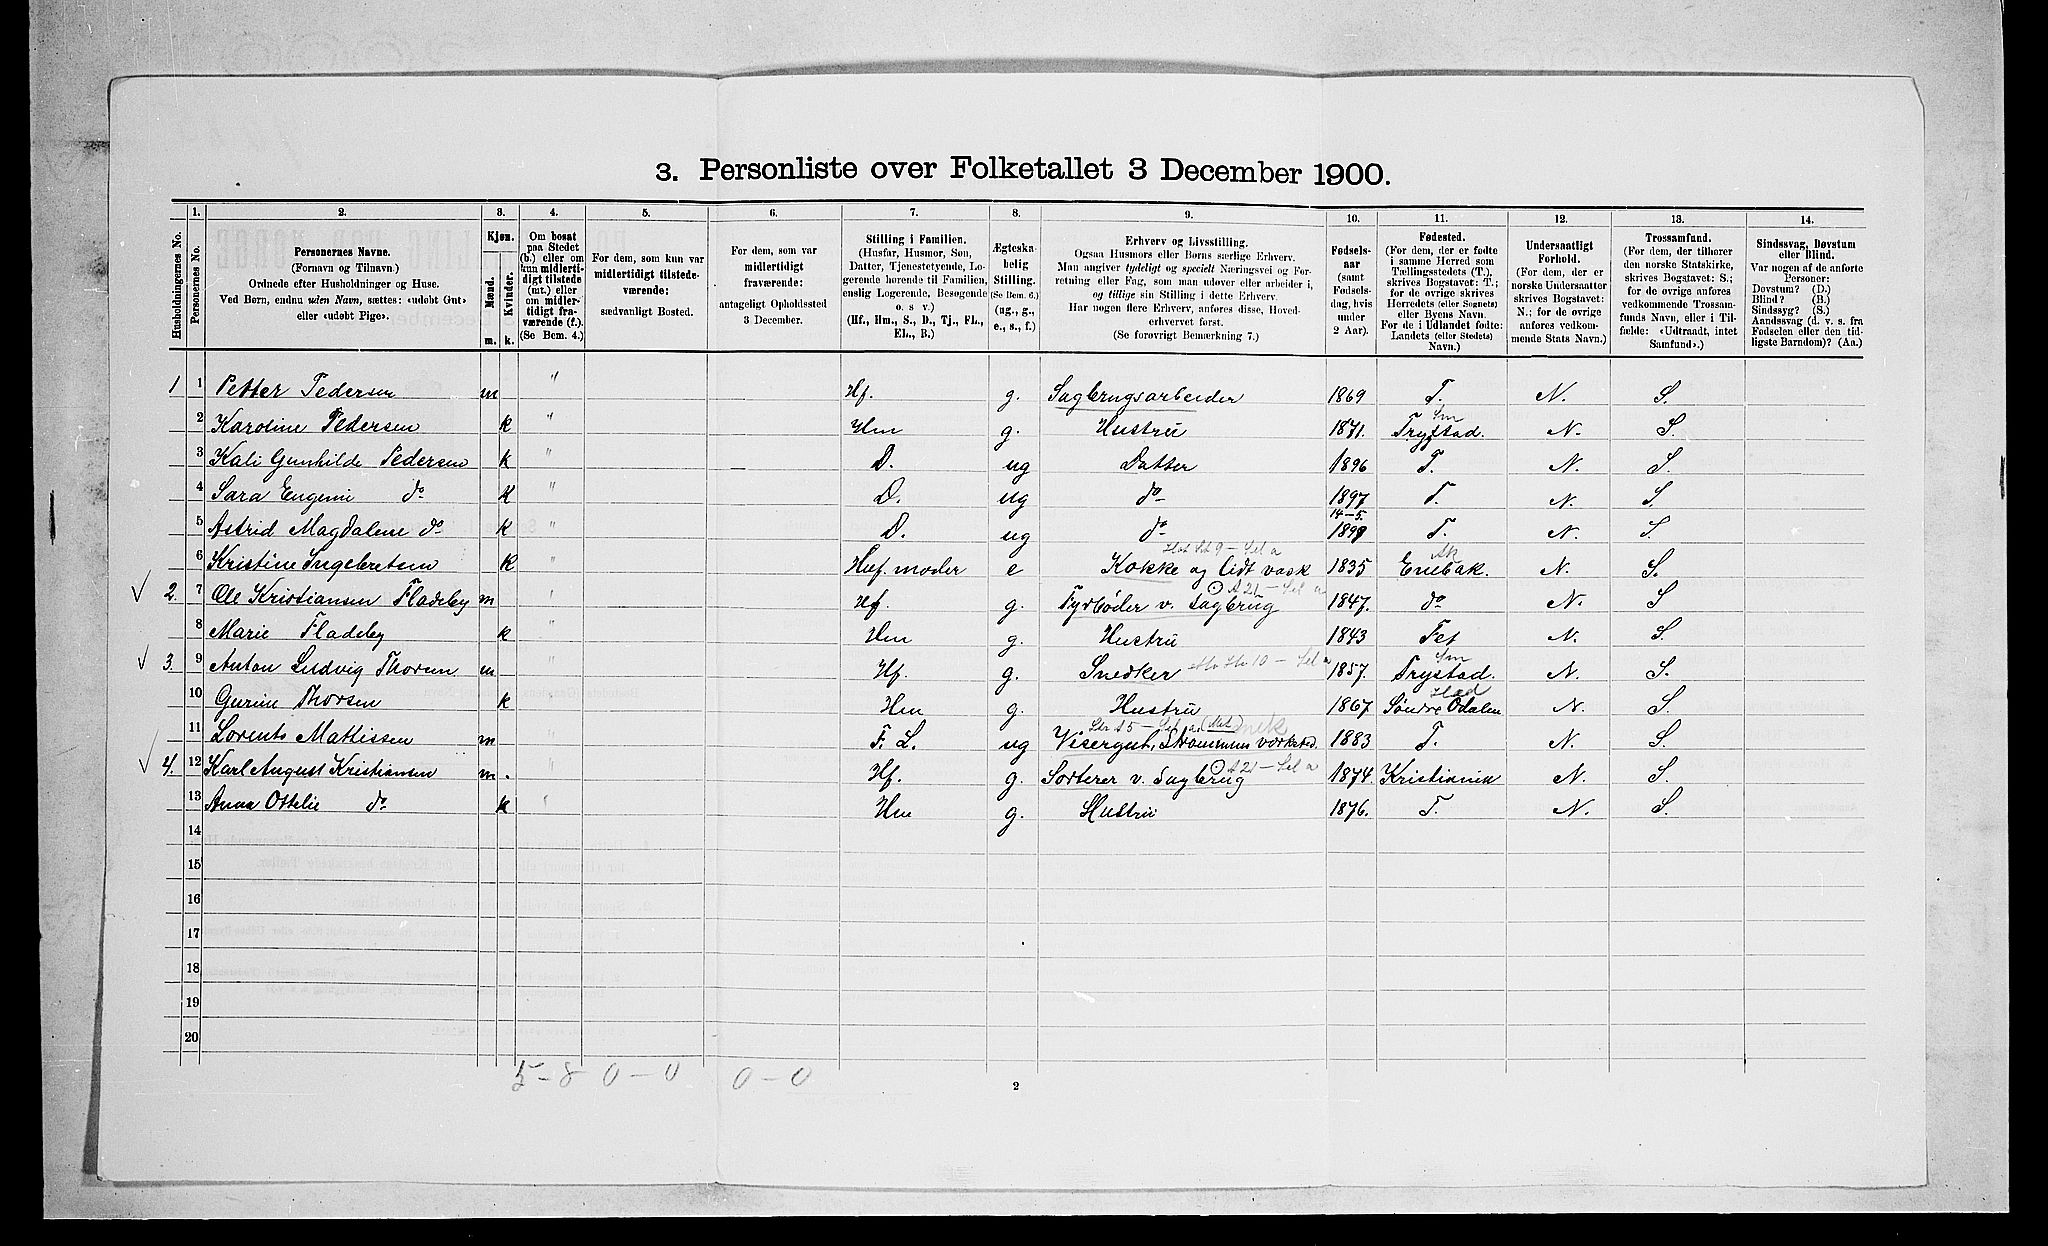 3. Personliste over Folketallet 3 December 1900.
Husholdningernes No.
1. Personernes No.
2. Personernes Navne. (Fornavn og Tilnavn.) Ordnede efter Husholdninger og Huse. Ved Børn, endnu uden Navn, sættes: «udøbt Gut» eller «udøbt Pige».
3. Kjøn. Mænd. m. Kvinder. k.
4. Om bosat paa Stedet (b.) eller om kun midlertidigt tilstede (mt.) eller om midlertidigt fraværende (f.). (Se Bem. 4.)
5. For dem, som kun var midlertidigt tilstedeværende: sædvanligt Bosted.
6. For dem, som var midlertidigt fraværende: antageligt Opholdssted 3 December.
7. Stilling i Familien. (Husfar, Husmor, Søn, Datter, Tjenestetyende, Logerende hørende til Familien, enslig Logerende, Besøgende o. s. v.) (Hf., Hm., S., D., Tj., FL., EL., B.)
8. Ægteskabelig Stilling. (Se Bem. 6.) (ug., g., e., s., f.)
9. Erhverv og Livsstilling. Ogsaa Husmors eller Børns særlige Erhverv. Man angiver tydeligt og specielt Næringsvei og Forretning eller Fag, som man udøver eller arbeider i, og tillige sin Stilling i dette Erhverv. Har nogen flere Erhverv, anføres disse, Hovederhvervet først. (Se forøvrigt Bemærkning 7.)
10. Fødselsaar (samt Fødselsdag, hvis under 2 Aar).
11. Fødested. (For dem, der er fødte i samme Herred som Tællingsstedets (T.), skrives Bogstavet: T.; for de øvrige skrives Herredets (eller Sognets) eller Byens Navn. For de i Udlandet fødte: Landets (eller Stedets) Navn.)
12. Undersaatligt Forhold. (For dem, der er norske Undersaatter skrives Bogstavet: N.; for de øvrige anføres vedkommende Stats Navn.)
13. Trossamfund. (For dem, der tilhører den norske Statskirke, skrives Bogstavet: S.; for de øvrige anføres vedkommende Trossamfunds Navn, eller i Tilfælde: «Udtraadt, intet Samfund».)
14. Sindssvag, Døvstum eller Blind. Var nogen af de anførte Personer: Døvstum? (D.) Blind? (B.) Sindssyg? (S.) Aandssvag (d. v. s. fra Fødselen eller den tidligste Barndom)? (Aa.)
1 1 Petter Pedersen m " Hf. g. Sagbrugsarbeider 1869 T. N. S.
2 Karoline Pedersen k " Hm g. Hustru 1871. Trygstad. Sm N. S.
3 Kali Gunhilde Pedersen k " D. ug Datter 1896 T. N. S.
4 Sara Eugenie do k " D. ug do 1897 T. N. S.
5 Astrid Magdalene do k " D. ug do 14-5. 1899 T. N. S.
6 Kristine Ingebretsen k " Husf. moder e Kokke og lidt vask 1835 Enebak. Ak N. S.
2. 7 Ole Kristiansen Fladeby m " Hf. g. Fyrbøder v. Sagbrug 1847. do N. S
8 Marie Fladeby k " Hm g. Hustru 1843 Fet N. S.
3. 9 Anton Ludvig Thorsen m " Hf. g. Snedker 1857. Trystad. Sm N. S.
10 Gurine Thorsen k Hm g. Hustru 1867 Søndre Odalen Hed N. S.
11 Lorents Mattissen m " F. L. ug Visergut, Strømmen værksted. 1883 T. N. S.
4. 12 Karl August Kristiansen m. " Hf. g. Sorterer v. Sagbrug A 21 1874. Kristiania N. S.
13 Anna Ottilie do k " Hm g. Hustru 1876. T. N. S.
14
15
16
17
18
19
20
5-8 0-0 0-0
2